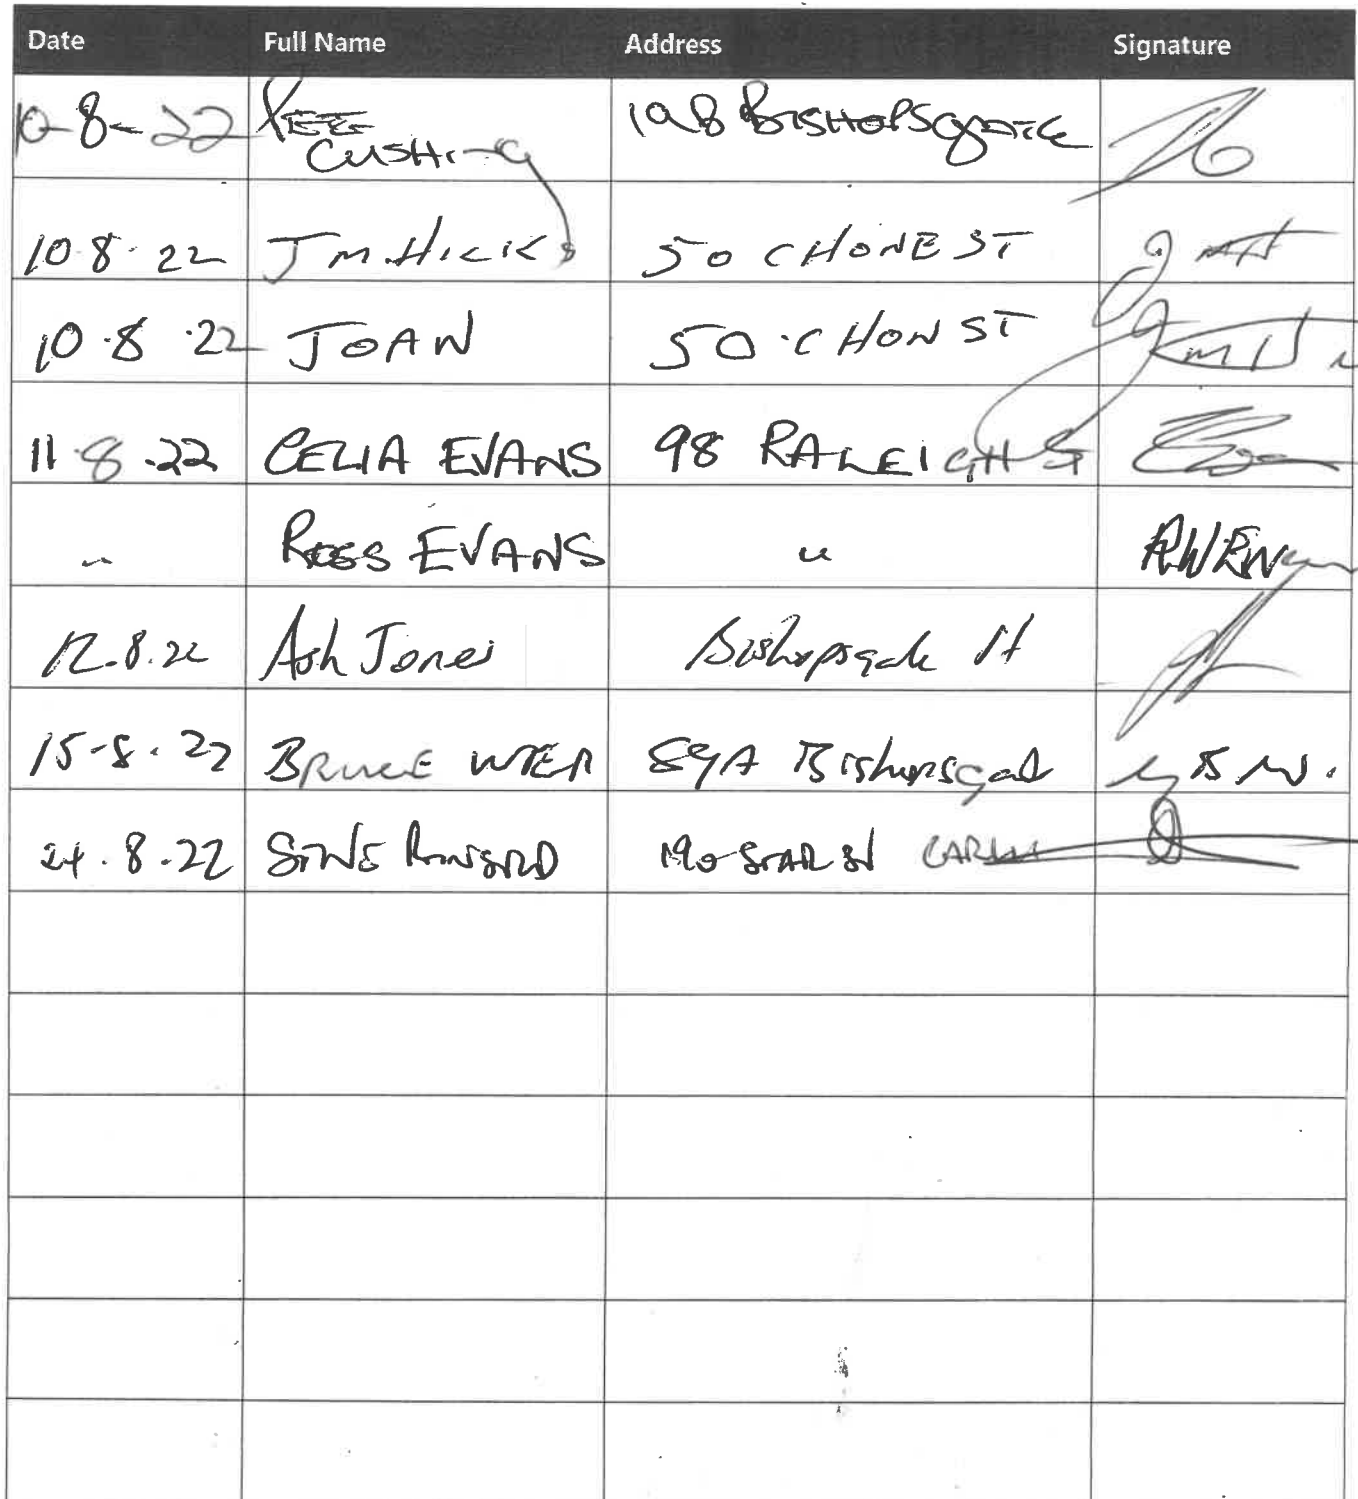 Date Full Name Address Signature
10-8-22 CUSHING 19B BISHOPSGATE
10.8.22 J M HICKS 50 CHONE ST
10.8.22 JOAN 50 CHON ST
11.8.22 CELIA EVANS 98 RALEIGH ST
" ROSS EVANS "
12.8.22 Ash Jones Bishopsgate St
15-8.22 BRUCE 89A Bishopsgat B W.
24.8.22 190 STAR ST